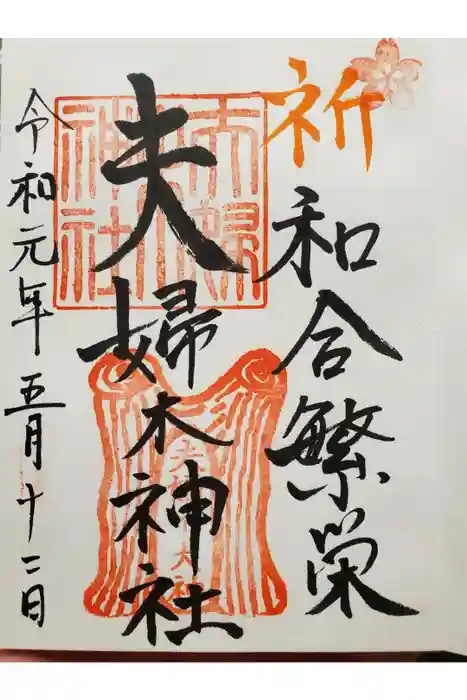 祈
和合繁栄
夫婦木神社
令和元年五月十二日
夫婦木神社